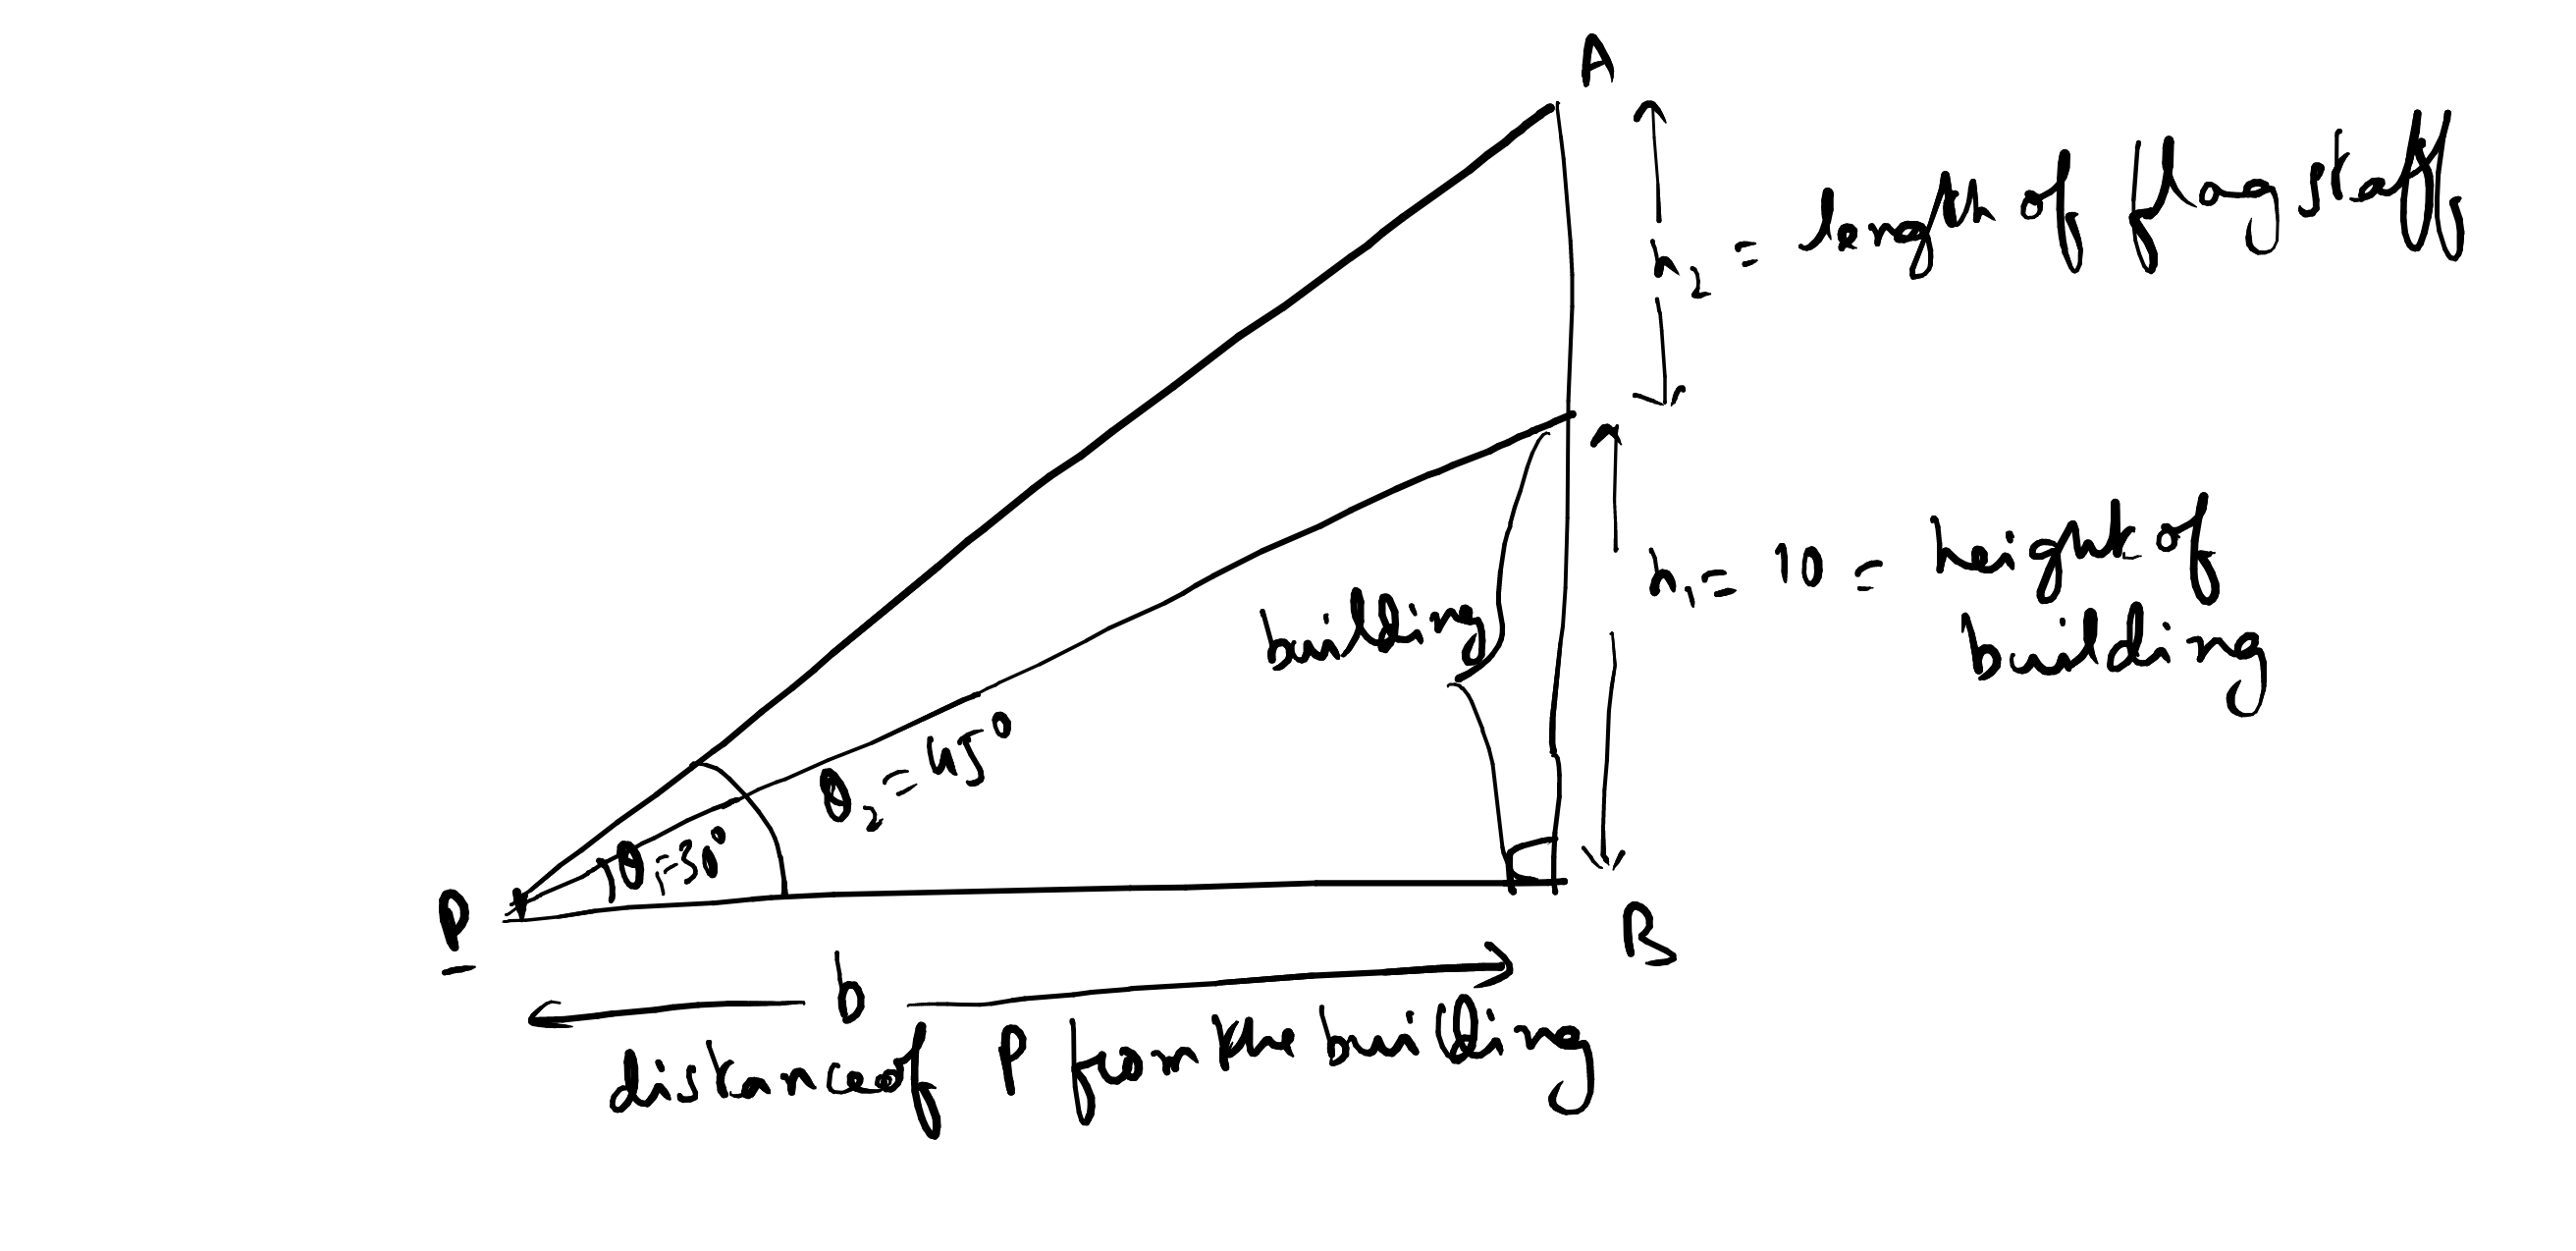 A
h₂ = length of flag staff
h₁ = 10 = height of
building
building
θ₂ = 45°
θ₁ = 30°
P
B
b
distance of P from the building